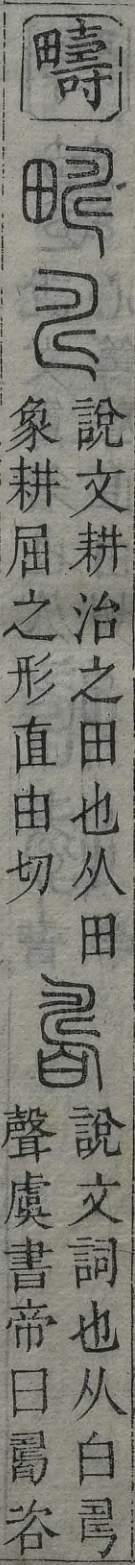 疇
說文耕治之田也从田
象耕屈之形直由切
說文詞也从白𠷎
聲虞書帝曰𠷎咨